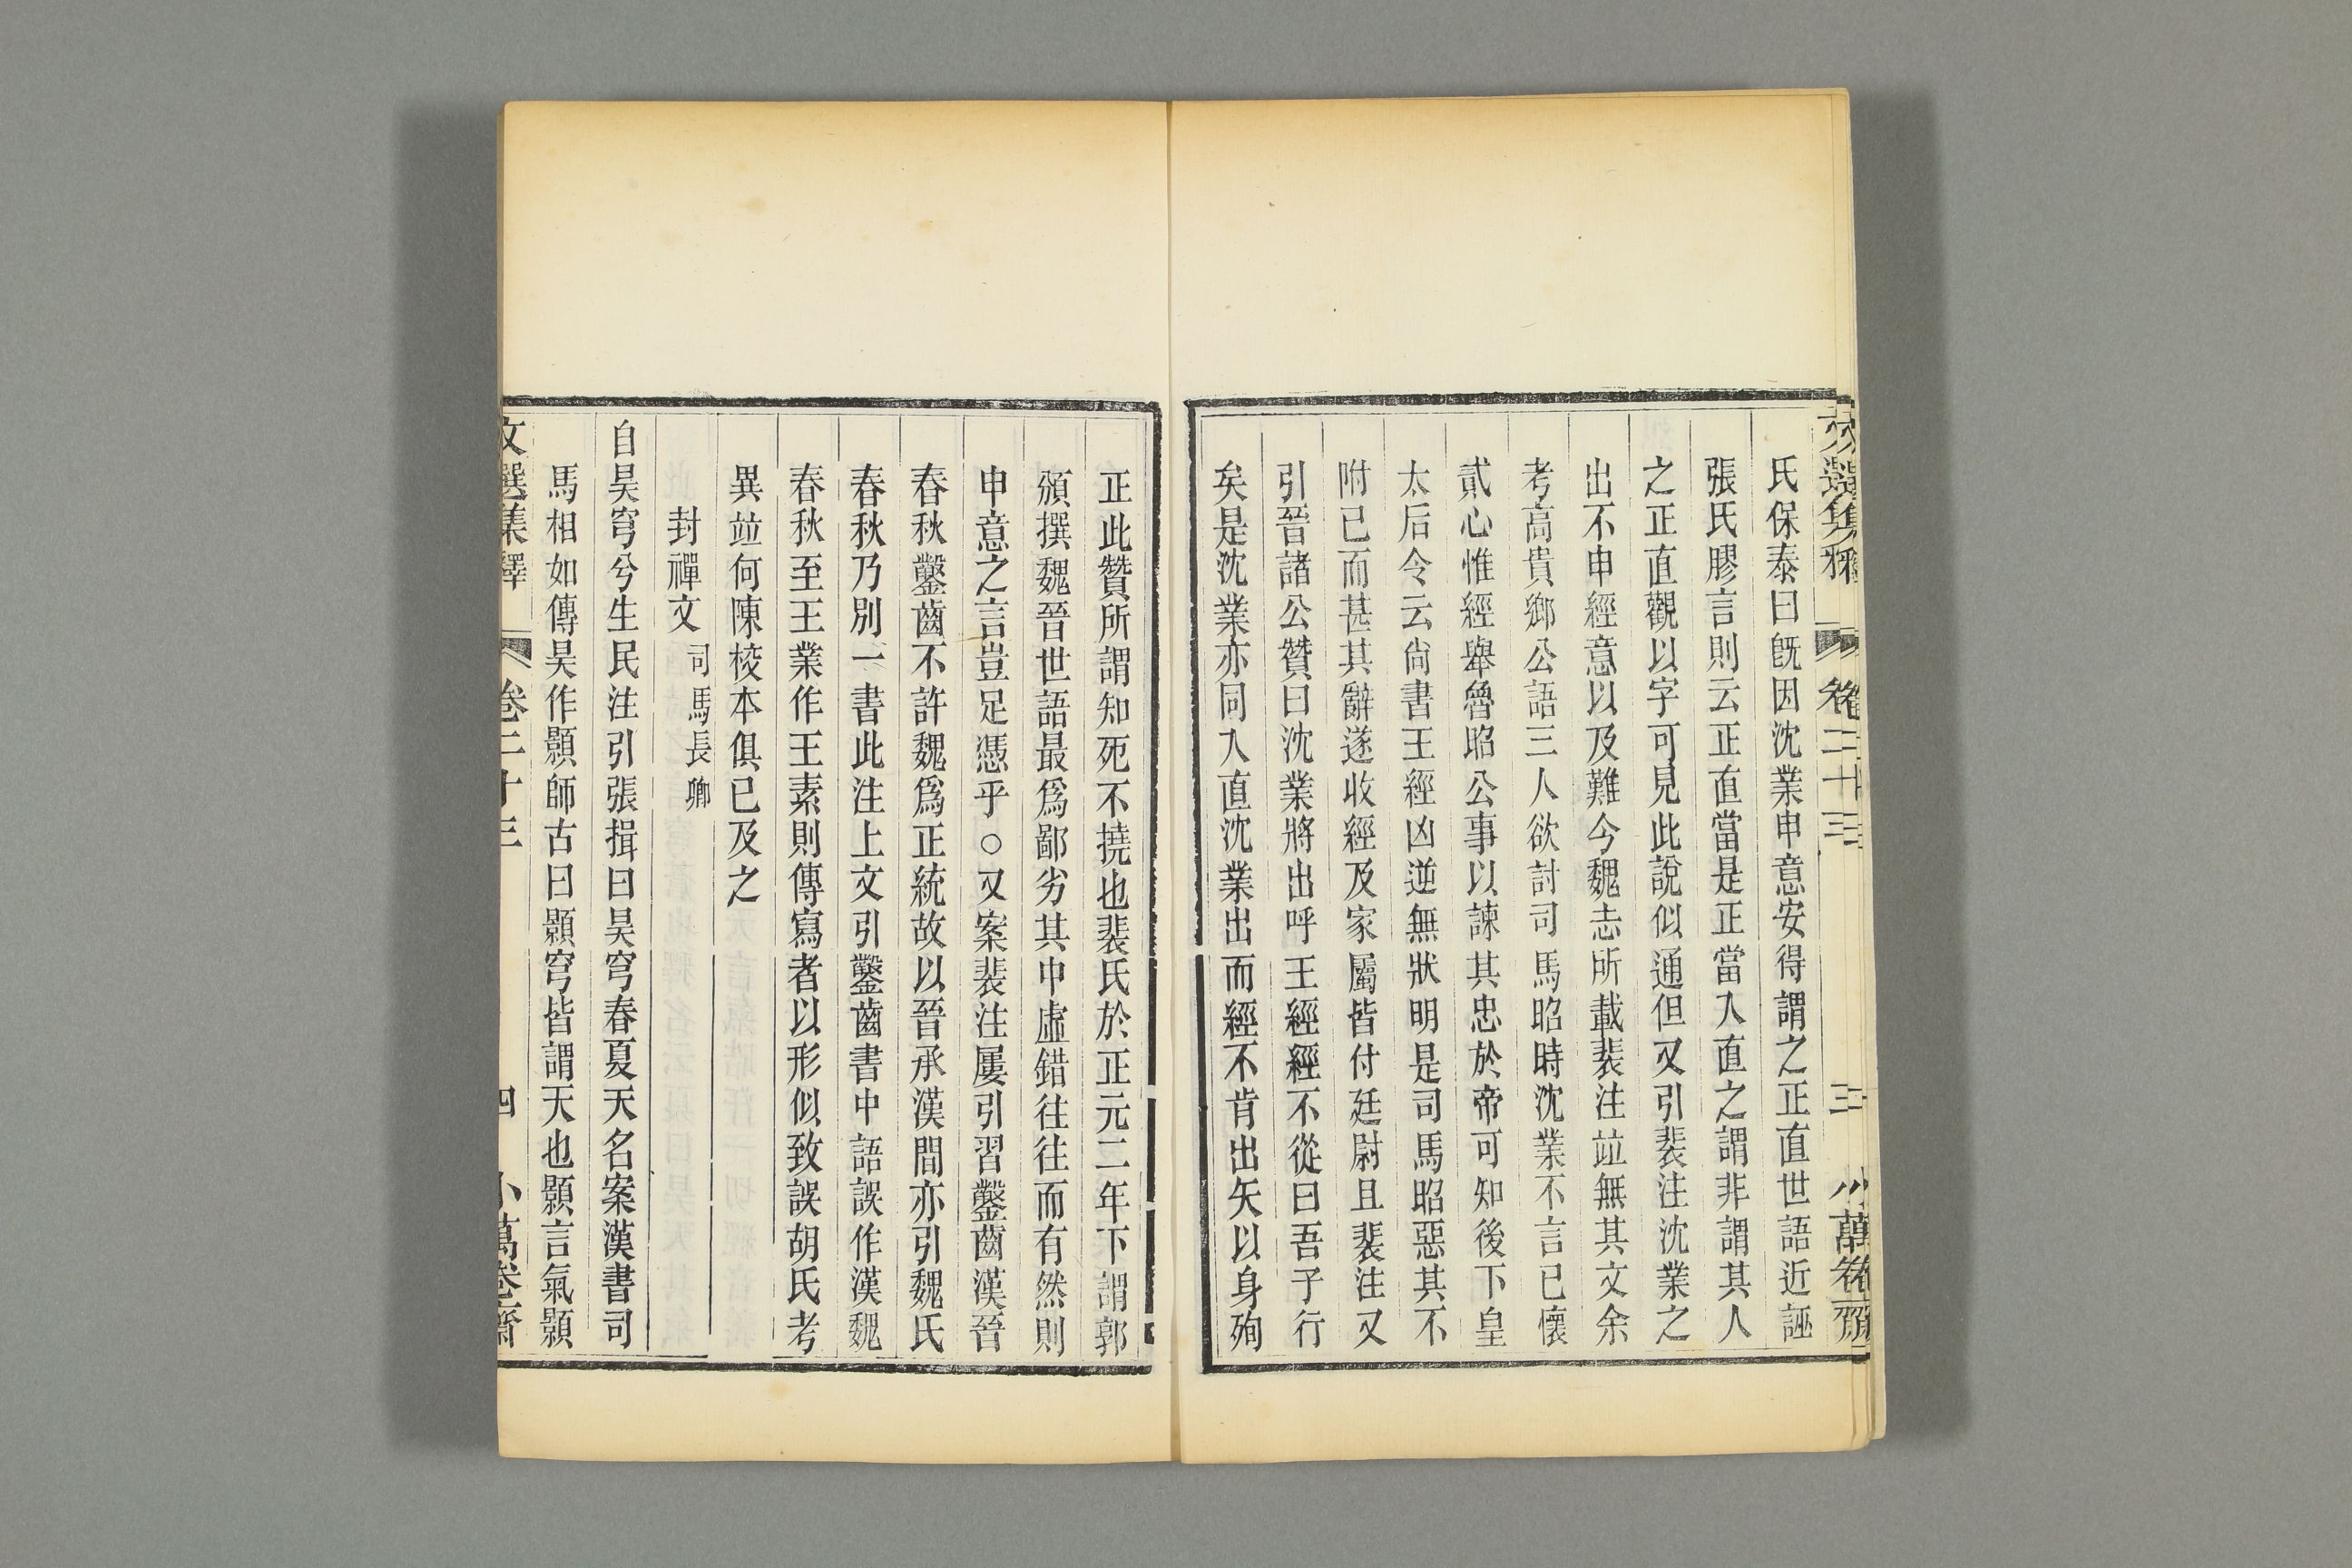 文選集釋 卷二十三 三 小萬卷齋
氏保泰曰旣因沈業申意安得謂之正直世語近誣
張氏膠言則云正直當是正當入直之謂非謂其人
之正直觀以字可見此說似通但又引裴注沈業之
出不申經意以及難今魏志所載裴注竝無其文余
考高貴鄉公語三人欲討司馬昭時沈業不言已懷
貳心惟經舉魯昭公事以諫其忠於帝可知後下皇
太后令云尙書王經凶逆無狀明是司馬昭惡其不
附已而甚其辭遂收經及家屬皆付廷尉且裴注又
引晉諸公贊曰沈業將出呼王經經不從曰吾子行
矣是沈業亦同入直沈業出而經不肯出矢以身殉
正此贊所謂知死不撓也裴氏於正元二年下謂郭
頒撰魏晉世語最爲鄙劣其中虛錯往往而有然則
申意之言豈足憑乎○又案裴注屢引習鑿齒漢晉
春秋鑿齒不許魏爲正統故以晉承漢間亦引魏氏
春秋乃別一書此注上文引鑿齒書中語誤作漢魏
春秋至王業作王素則傳寫者以形似致誤胡氏考
異竝何陳校本俱已及之
封禪文 司馬長卿
自昊穹兮生民注引張揖曰昊穹春夏天名案漢書司
馬相如傳昊作顥師古曰顥穹皆謂天也顥言氣顥
文選集釋 卷二十三 四 小萬卷齋